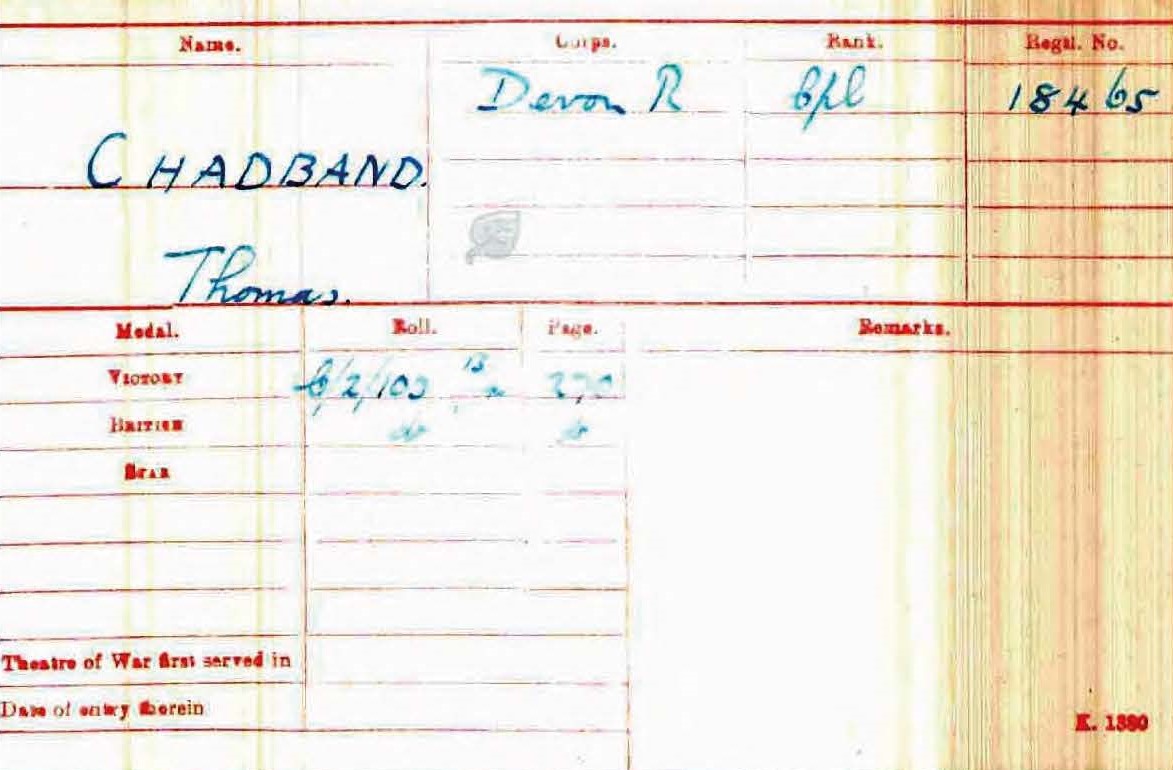 Name. Corps. Rank. Regtl. No.
Devon R Cpl 18465
CHADBAND.
Thomas.
Medal. Roll. Page. Remarks.
VICTORY 270
BRITISH do do
STAR
Theatre of War first served in
Date of entry therein
K. 1380